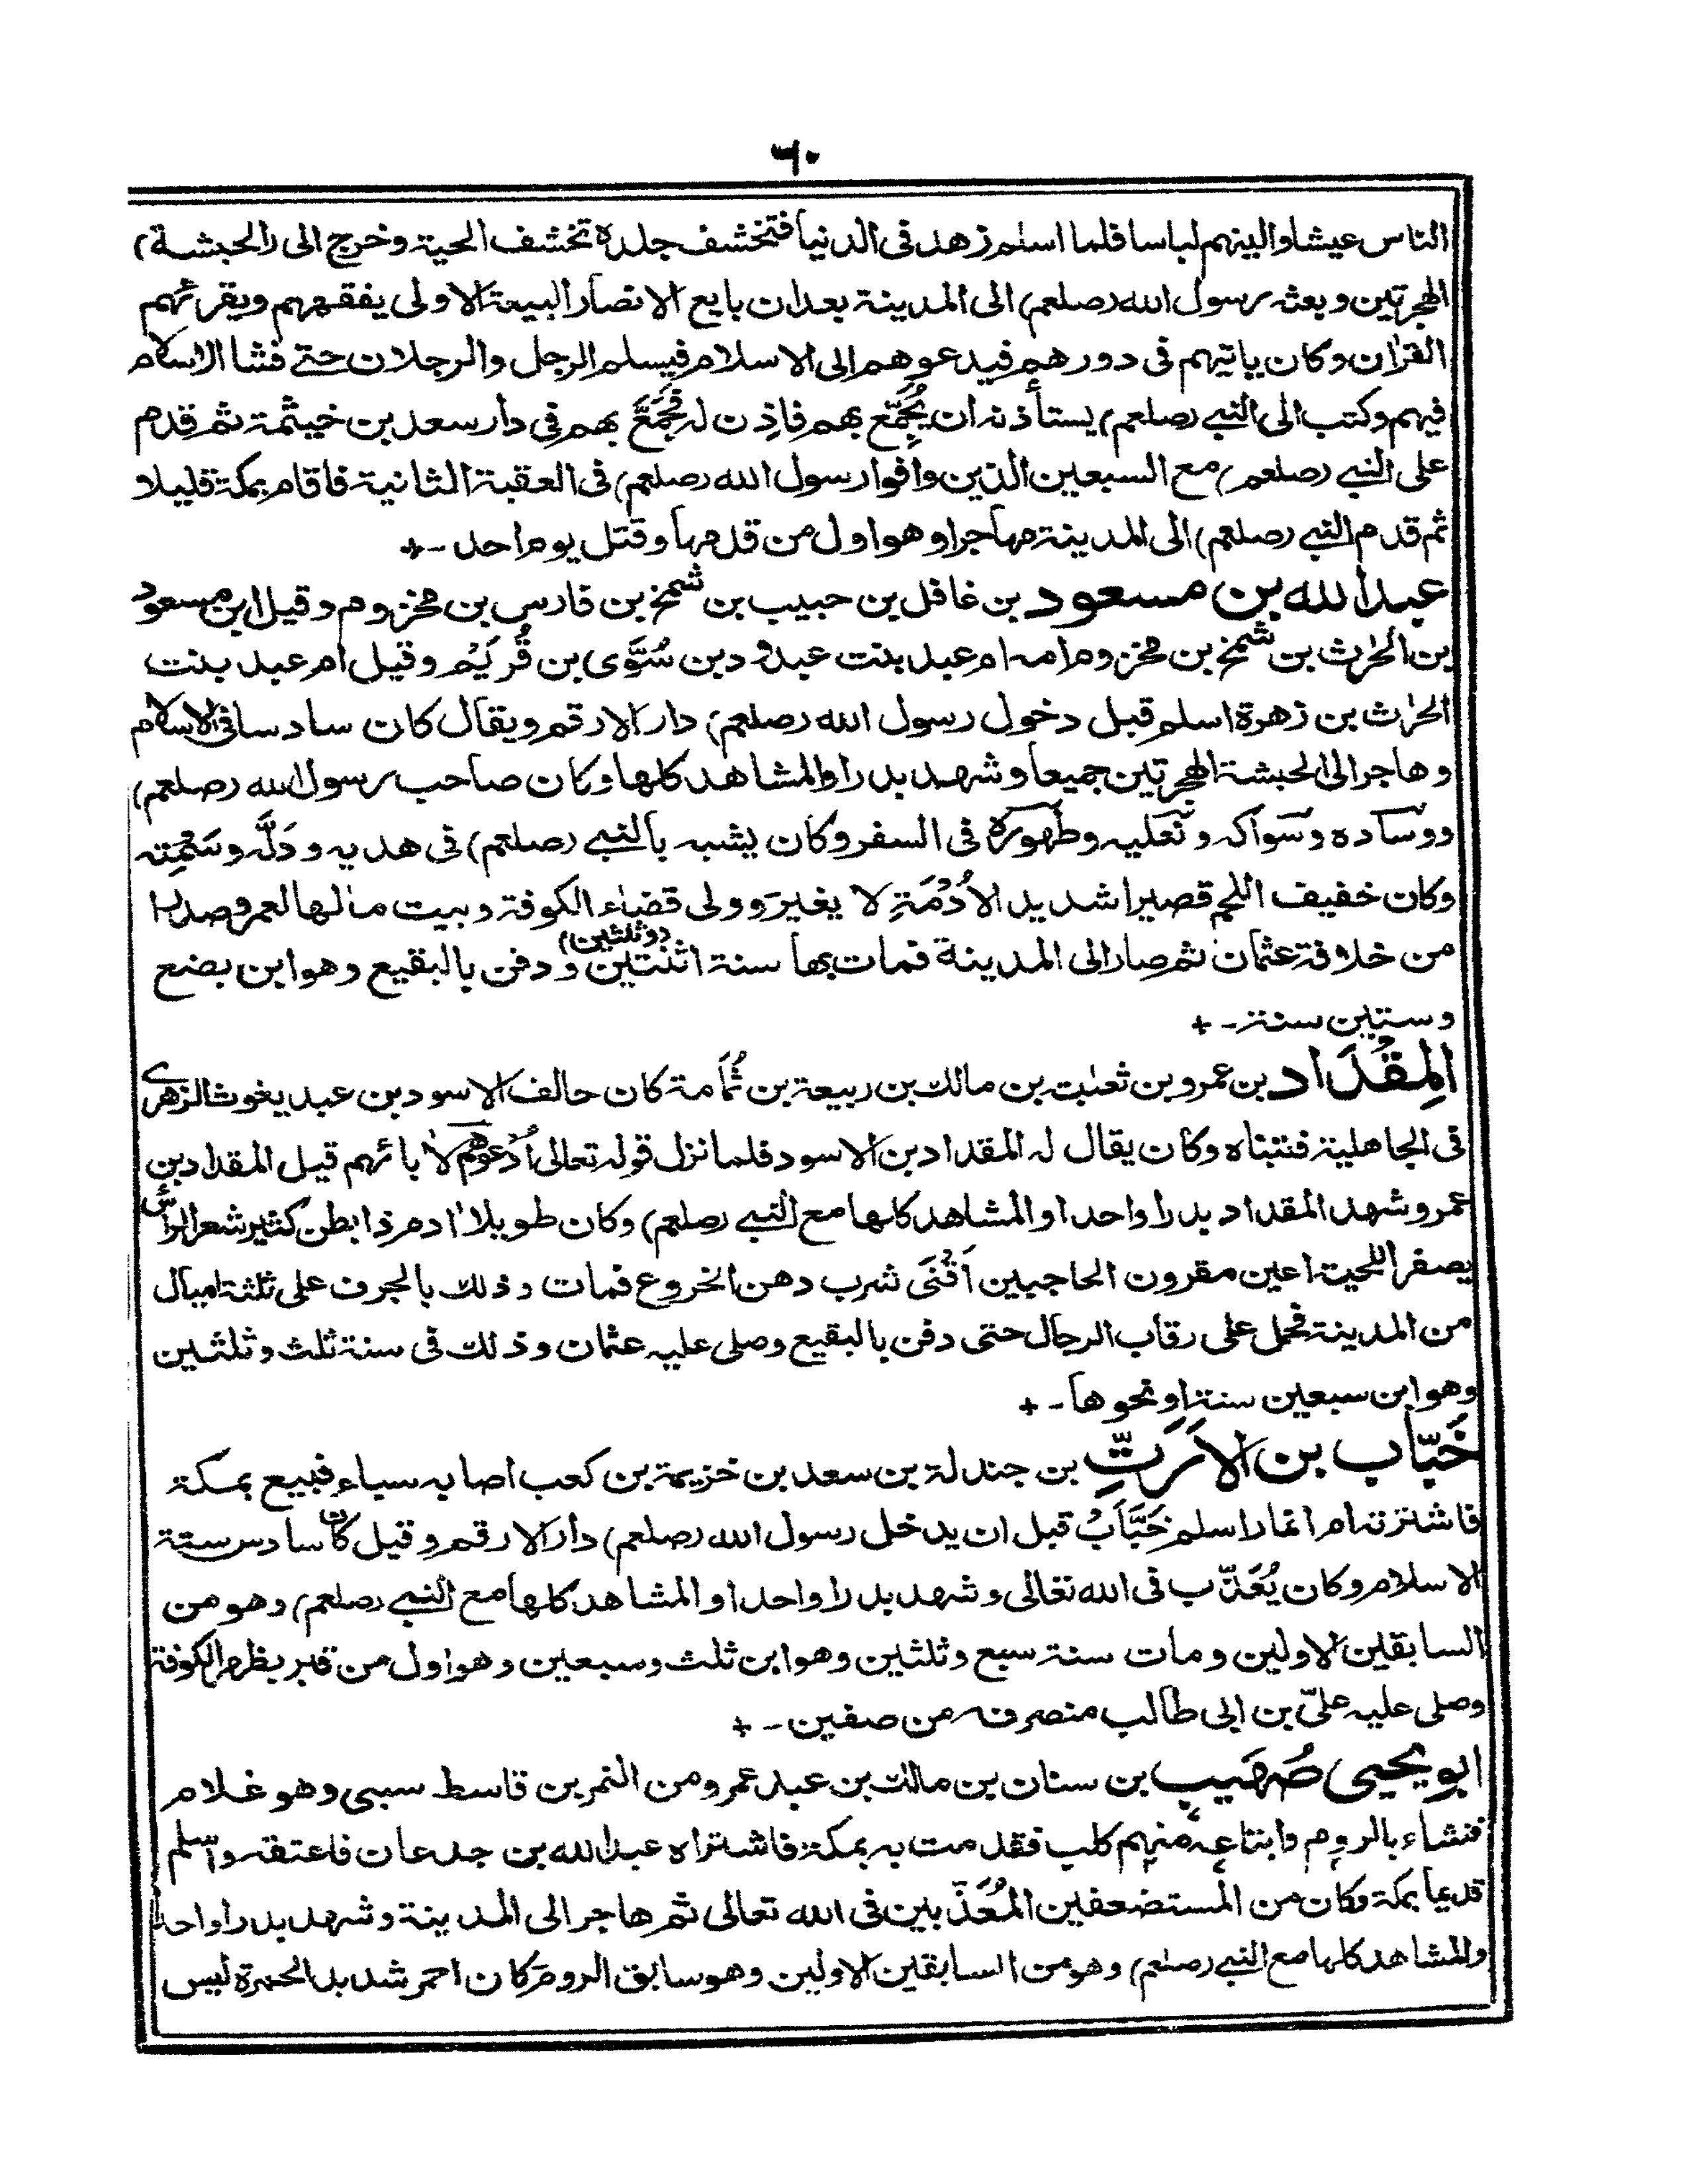 ٦٠
الناس عيشا والينهم لباسا فلما اسلم زهد فى الدنيا فتخشف جلده تخشف الحية وخرج الى (الحبشة)
الهجرتين وبعثه رسول الله (صلعم) الى المدينة بعد ان بايع الانصار البيعة الاولى يفقههم ويقرئهم
القرٰان وكان ياتيهم فى دورهم فيدعوهم الى الاسلام فيسلم الرجل والرجلان حتے فشا الاسلام
فيهم وكتب الى النبے (صلعم) يستأذنه ان يُجَمِّع بهم فاذِن له فجَمَّعَ بهم فِى دار سعد بن خيثمة ثم قدم
على النبے (صلعم) مع السبعين الذين وافوا رسول الله (صلعم) فى العقبة الثانية فاقام بمكة قليلا
ثم قدم النبے (صلعم) الى المدينة مهاجرا وهو اول من قدمها وقتل يوم احد -+
عبد الله بن مسعود بن غافل بن حبيب بن شمخ بن فارس بن مخزوم وقيل ابن مسعود
بن الحٰرث بن شمخ بن مخزوم امه ام عبد بنت عبد ود بن سُوَّى بن قُرَيْم وقيل ام عبد بنت
الحٰرث بن زهرة اسلم قبل دخول رسول الله (صلعم) دار الارقم ويقال كان سادسا فى الاسلام
وهاجر الى الحبشة الهجرتين جميعا وشهد بدرا والمشاهد كلها وكان صاحب رسول الله (صلعم)
ووساده وسواكه ونعليه وطهوره فى السفر وكان يشبه بالنبے (صلعم) فى هديه ودَلّه وسَمْتِه
وكان خفيف اللحم قصيرا شديد الاُدْمَةِ لا يغير وولى قضاء الكوفة وبيت مالها لعمر وصدرا
من خلافة عثمان ثم صار الى المدينة فمات بها سنة اثنتين (وثلثين) و دفن بالبقيع وهو ابن بضع
وستين سنة -+
المِقْدَاد بن عمرو بن ثعلبة بن مالك بن ربيعة بن ثُمَامة كان حالف الاسود بن عبد يغوث الزهرے
فى الجاهلية فتبناه وكان يقال له المقداد بن الاسود فلما نزل قوله تعالى اُدْعُوْهُمْ لاٰبائهم قيل المقداد بن
عمرو شهد المقداد بدرا واحدا والمشاهد كلها مع النبے (صلعم) وكان طويلا اٰدم ذا بطن كثير شعر الرأس
يصفر اللحية اعين مقرون الحاجبين اَقْنَى شرب دهن الخروع فمات وذلك بالجرف على ثلثة اميال
من المدينة فحمل على رقاب الرجال حتى دفن بالبقيع وصلى عليه عثمان وذلك فى سنة ثلث وثلثين
وهو ابن سبعين سنة او نحوها -+
خَبّاب بن الاَرَتِّ بن جندلة بن سعد بن خزيمة بن كعب اصابه سباء فبيع بمكة
فاشترته ام انمار اسلم خَبَّابُ قبل ان يدخل رسول الله (صلعم) دار الارقم وقيل كان سادس ستة
الاسلام وكان يُعَذّب فى الله تعالى وشهد بدرا واحدا والمشاهد كلها مع النبے (صلعم) وهو من
السابقين الاولين ومات سنة سبع وثلثين وهو ابن ثلث وسبعين وهو اول من قبر بظهر الكوفة
وصلى عليه علىّ بن ابى طالب منصرفه من صفين -+
ابو يحيى صُهَيب بن سنان بن مالك بن عبد عمرو من النمر بن قاسط سبى وهو غلام
فنشاء بالروم وابتاعه منهم كلب فقدمت به بمكة فاشتراه عبد الله بن جدعان فاعتقه واسلم
قديما بمكة وكان من المستضعفين المُعَذّبين فى الله تعالى ثم هاجر الى المدينة وشهد بدرا واحدا
والمشاهد كلها مع النبے (صلعم) وهو من السابقين الاولين وهو سابق الروم وكان احمر شديد الحمرة ليس